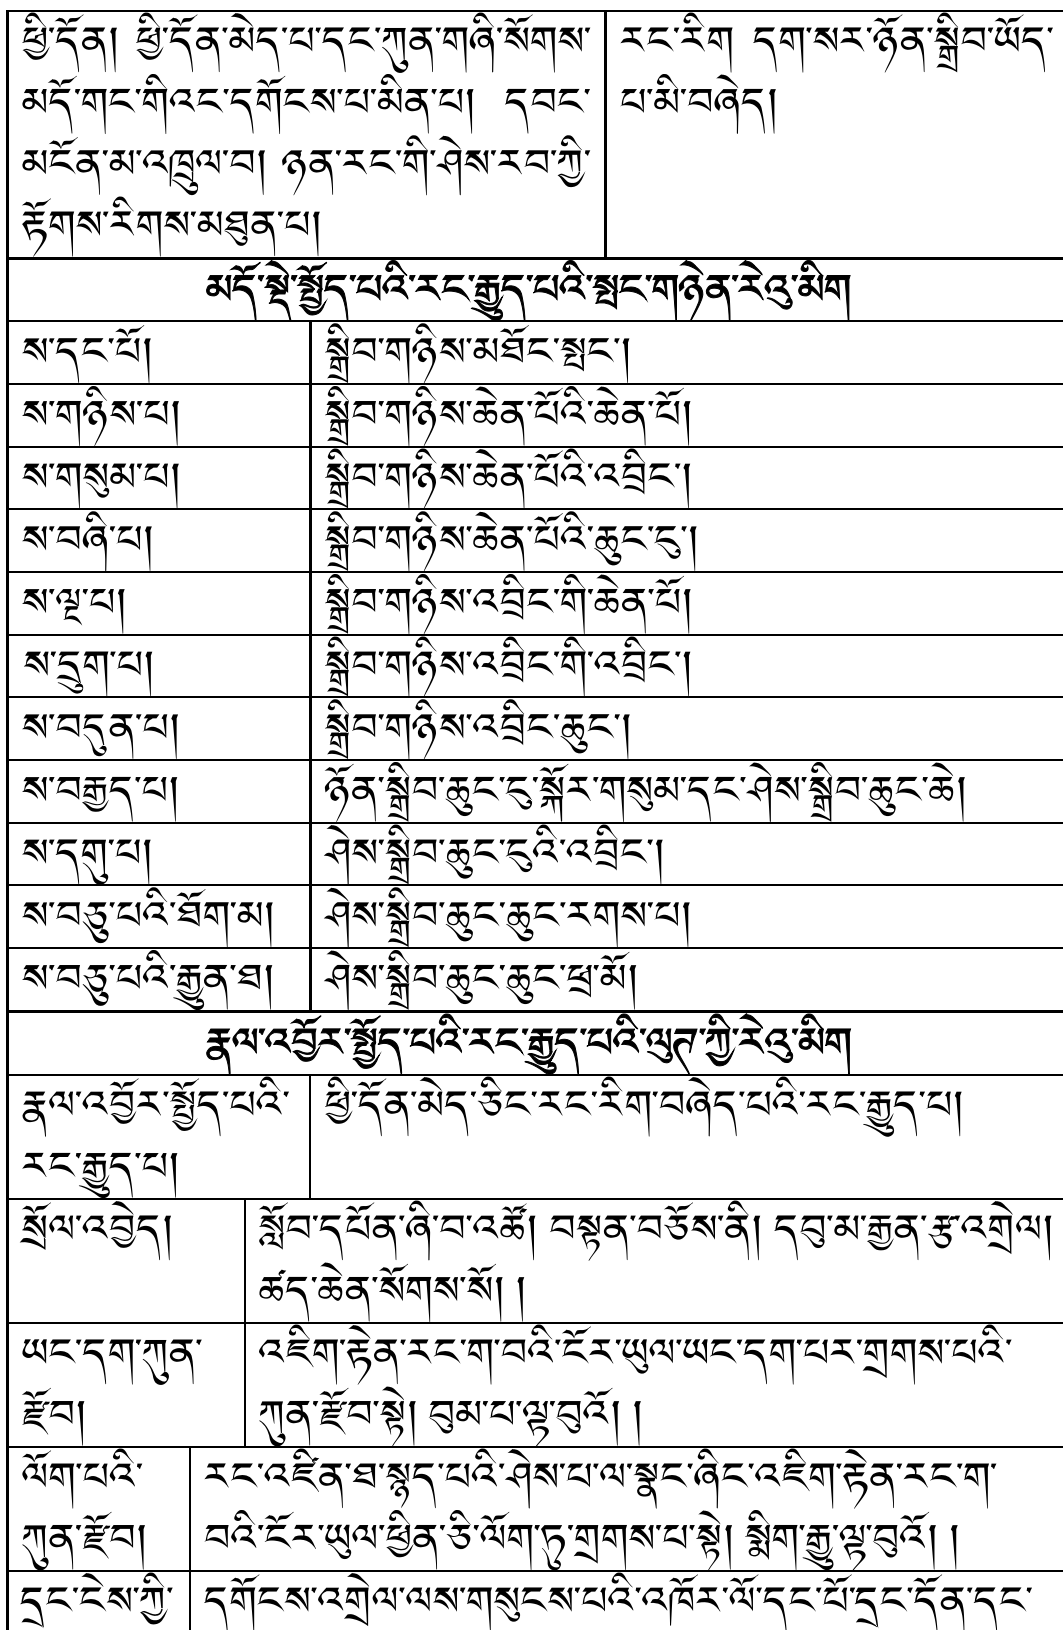 ཕྱི་དོན། ཕྱི་དོན་མེད་པ་དང་ཀུན་གཞི་སོགས་
མདོ་གང་གིའང་དགོངས་པ་མིན་པ། དབང་
མངོན་མ་འཁྲུལ་བ། ཉན་རང་གི་ཤེས་རབ་ཀྱི་
རྟོགས་རིགས་མཐུན་པ།
རང་རིག དག་སར་ཉོན་སྒྲིབ་ཡོད་
པ་མི་བཞེད།
མདོ་སྡེ་སྤྱོད་པའི་རང་རྒྱུད་པའི་སྤང་གཉེན་རེའུ་མིག
ས་དང་པོ།
སྒྲིབ་གཉིས་མཐོང་སྤང་།
ས་གཉིས་པ།
སྒྲིབ་གཉིས་ཆེན་པོའི་ཆེན་པོ།
ས་གསུམ་པ།
སྒྲིབ་གཉིས་ཆེན་པོའི་འབྲིང་།
ས་བཞི་པ།
སྒྲིབ་གཉིས་ཆེན་པོའི་ཆུང་ངུ་།
ས་ལྔ་པ།
སྒྲིབ་གཉིས་འབྲིང་གི་ཆེན་པོ།
ས་དྲུག་པ།
སྒྲིབ་གཉིས་འབྲིང་གི་འབྲིང་།
ས་བདུན་པ།
སྒྲིབ་གཉིས་འབྲིང་ཆུང་།
ས་བརྒྱད་པ།
ཉོན་སྒྲིབ་ཆུང་ངུ་སྐོར་གསུམ་དང་ཤེས་སྒྲིབ་ཆུང་ཆེ།
ས་དགུ་པ།
ཤེས་སྒྲིབ་ཆུང་ངུའི་འབྲིང་།
ས་བཅུ་པའི་ཐོག་མ།
ཤེས་སྒྲིབ་ཆུང་ཆུང་རགས་པ།
ས་བཅུ་པའི་རྒྱུན་ཐ།
ཤེས་སྒྲིབ་ཆུང་ཆུང་ཕྲ་མོ།
རྣལ་འབྱོར་སྤྱོད་པའི་རང་རྒྱུད་པའི་ལུཊ་ཀྱི་རེའུ་མིག
རྣལ་འབྱོར་སྤྱོད་པའི་
རང་རྒྱུད་པ།
ཕྱི་དོན་མེད་ཅིང་རང་རིག་བཞེད་པའི་རང་རྒྱུད་པ།
སྲོལ་འབྱེད།
སློབ་དཔོན་ཞི་བ་འཚོ། བསྟན་བཅོས་ནི། དབུ་མ་རྒྱན་རྩ་འགྲེལ།
ཚད་ཆེན་སོགས་སོ། །
ཡང་དག་ཀུན་
རྫོབ།
འཇིག་རྟེན་རང་ག་བའི་ངོར་ཡུལ་ཡང་དག་པར་གྲགས་པའི་
ཀུན་རྫོབ་སྟེ། བུམ་པ་ལྟ་བུའོ། །
ལོག་པའི་
ཀུན་རྫོབ།
རང་འཛིན་ཐ་སྙད་པའི་ཤེས་པ་ལ་སྣང་ཞིང་འཇིག་རྟེན་རང་ག་
བའི་ངོར་ཡུལ་ཕྱིན་ཅི་ལོག་ཏུ་གྲགས་པ་སྟེ། སྨིག་རྒྱུ་ལྟ་བུའོ། །
དྲང་ངེས་ཀྱི་
དགོངས་འགྲེལ་ལས་གསུངས་པའི་འཁོར་ལོ་དང་པོ་དྲང་དོན་དང་